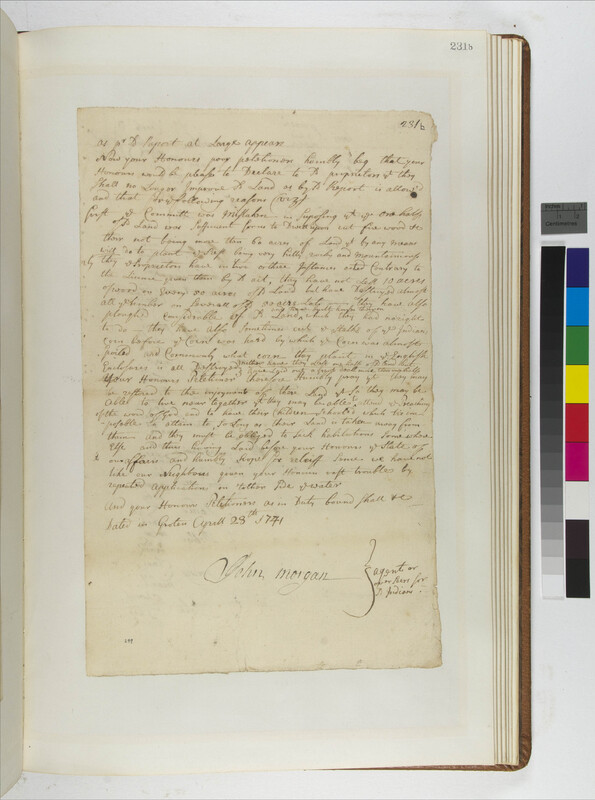 231b
231b
as pr sd Report at Large appears
Now your Honours poor petitioners humbly beg that your
Honours would be pleased to Declare to sd proprietors yt they
Shall no Longer Improve sd Land as by sd Report is allowd
and that for ye following reasons (viz)
first ye Committe was mistaken in suposing yt ye one half
of sd Land was sufficient for us to Dwell upon cut fire wood &c
there not being more then 60 acres of Land yt by any means
will do to plant ye Rest being very hilly rocky and mountainous
ly The proprietors have in two or three Instances acted Contrary to
the Lisence given them by sd act, they have not left 10 acres
of wood on Every 100 acres of sd Land but have Destroyed almost
all ye timber in Several of ye 100 acre Lots They have also
ploughed Considerable of sd Land which they had no right
to do they have also Sometimes cut ye Stalks of ye Indian
Corn before ye Corn was hard by which ye Corn was almost
spoiled and Commonly what corn they plant in ye English
Enclosures is all Destroyed
Your Honours Petitioners Therefore Humbly pray yt they may
be restored to the injoyment of their Land & so they may be
Able to live near together yt they may be able to attend ye Preaching
of the word of God and to have their Children Schooled which tis im=
posable to attain to So Long as their Land is taken away from
them and they must be obliged to Seek habitations Some where
Else and thus having Laid before your Honours ye State of
our affairs and Humbly hope for releiff Since we have not
like our Neighbours given your Honours vast trouble by
repeated Applications on Tother Side ye water
And your Honours Petitioners as in Duty bound Shall &c
Dated in Groton Aprill 28th 1741
John morgan
agent or
over seer for
sd Indians